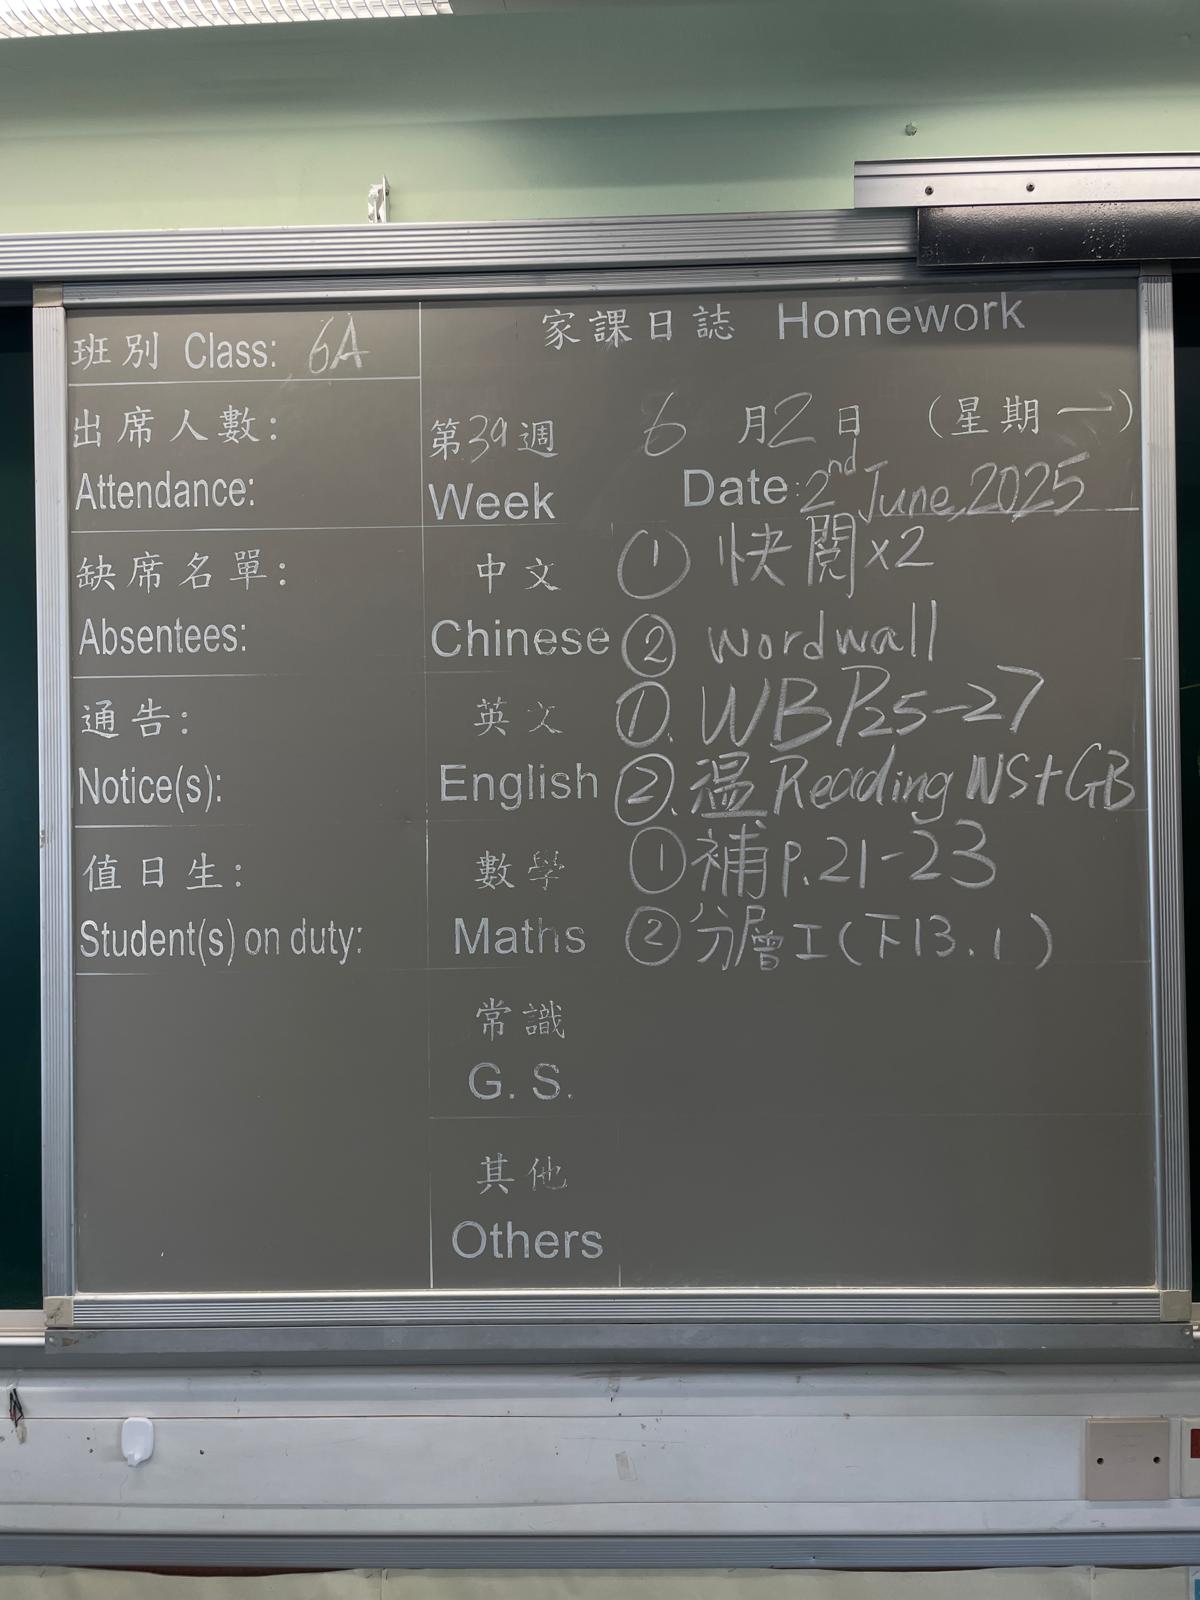 班別 Class: 6A
出席人數:
Attendance:
缺席名單:
Absentees:
通告:
Notice(s):
值日生:
Student(s) on duty:
家課日誌 Homework
第39週 6月2日 (星期一)
Week Date: 2nd June, 2025
中文 ① 快閱x2
Chinese ② wordwall
英文 ①. WB P.25-27
English ②. 溫 Reading NS+GB
數學 ① 補 P.21-23
Maths ② 分層工(下13.1)
常識
G. S.
其他
Others